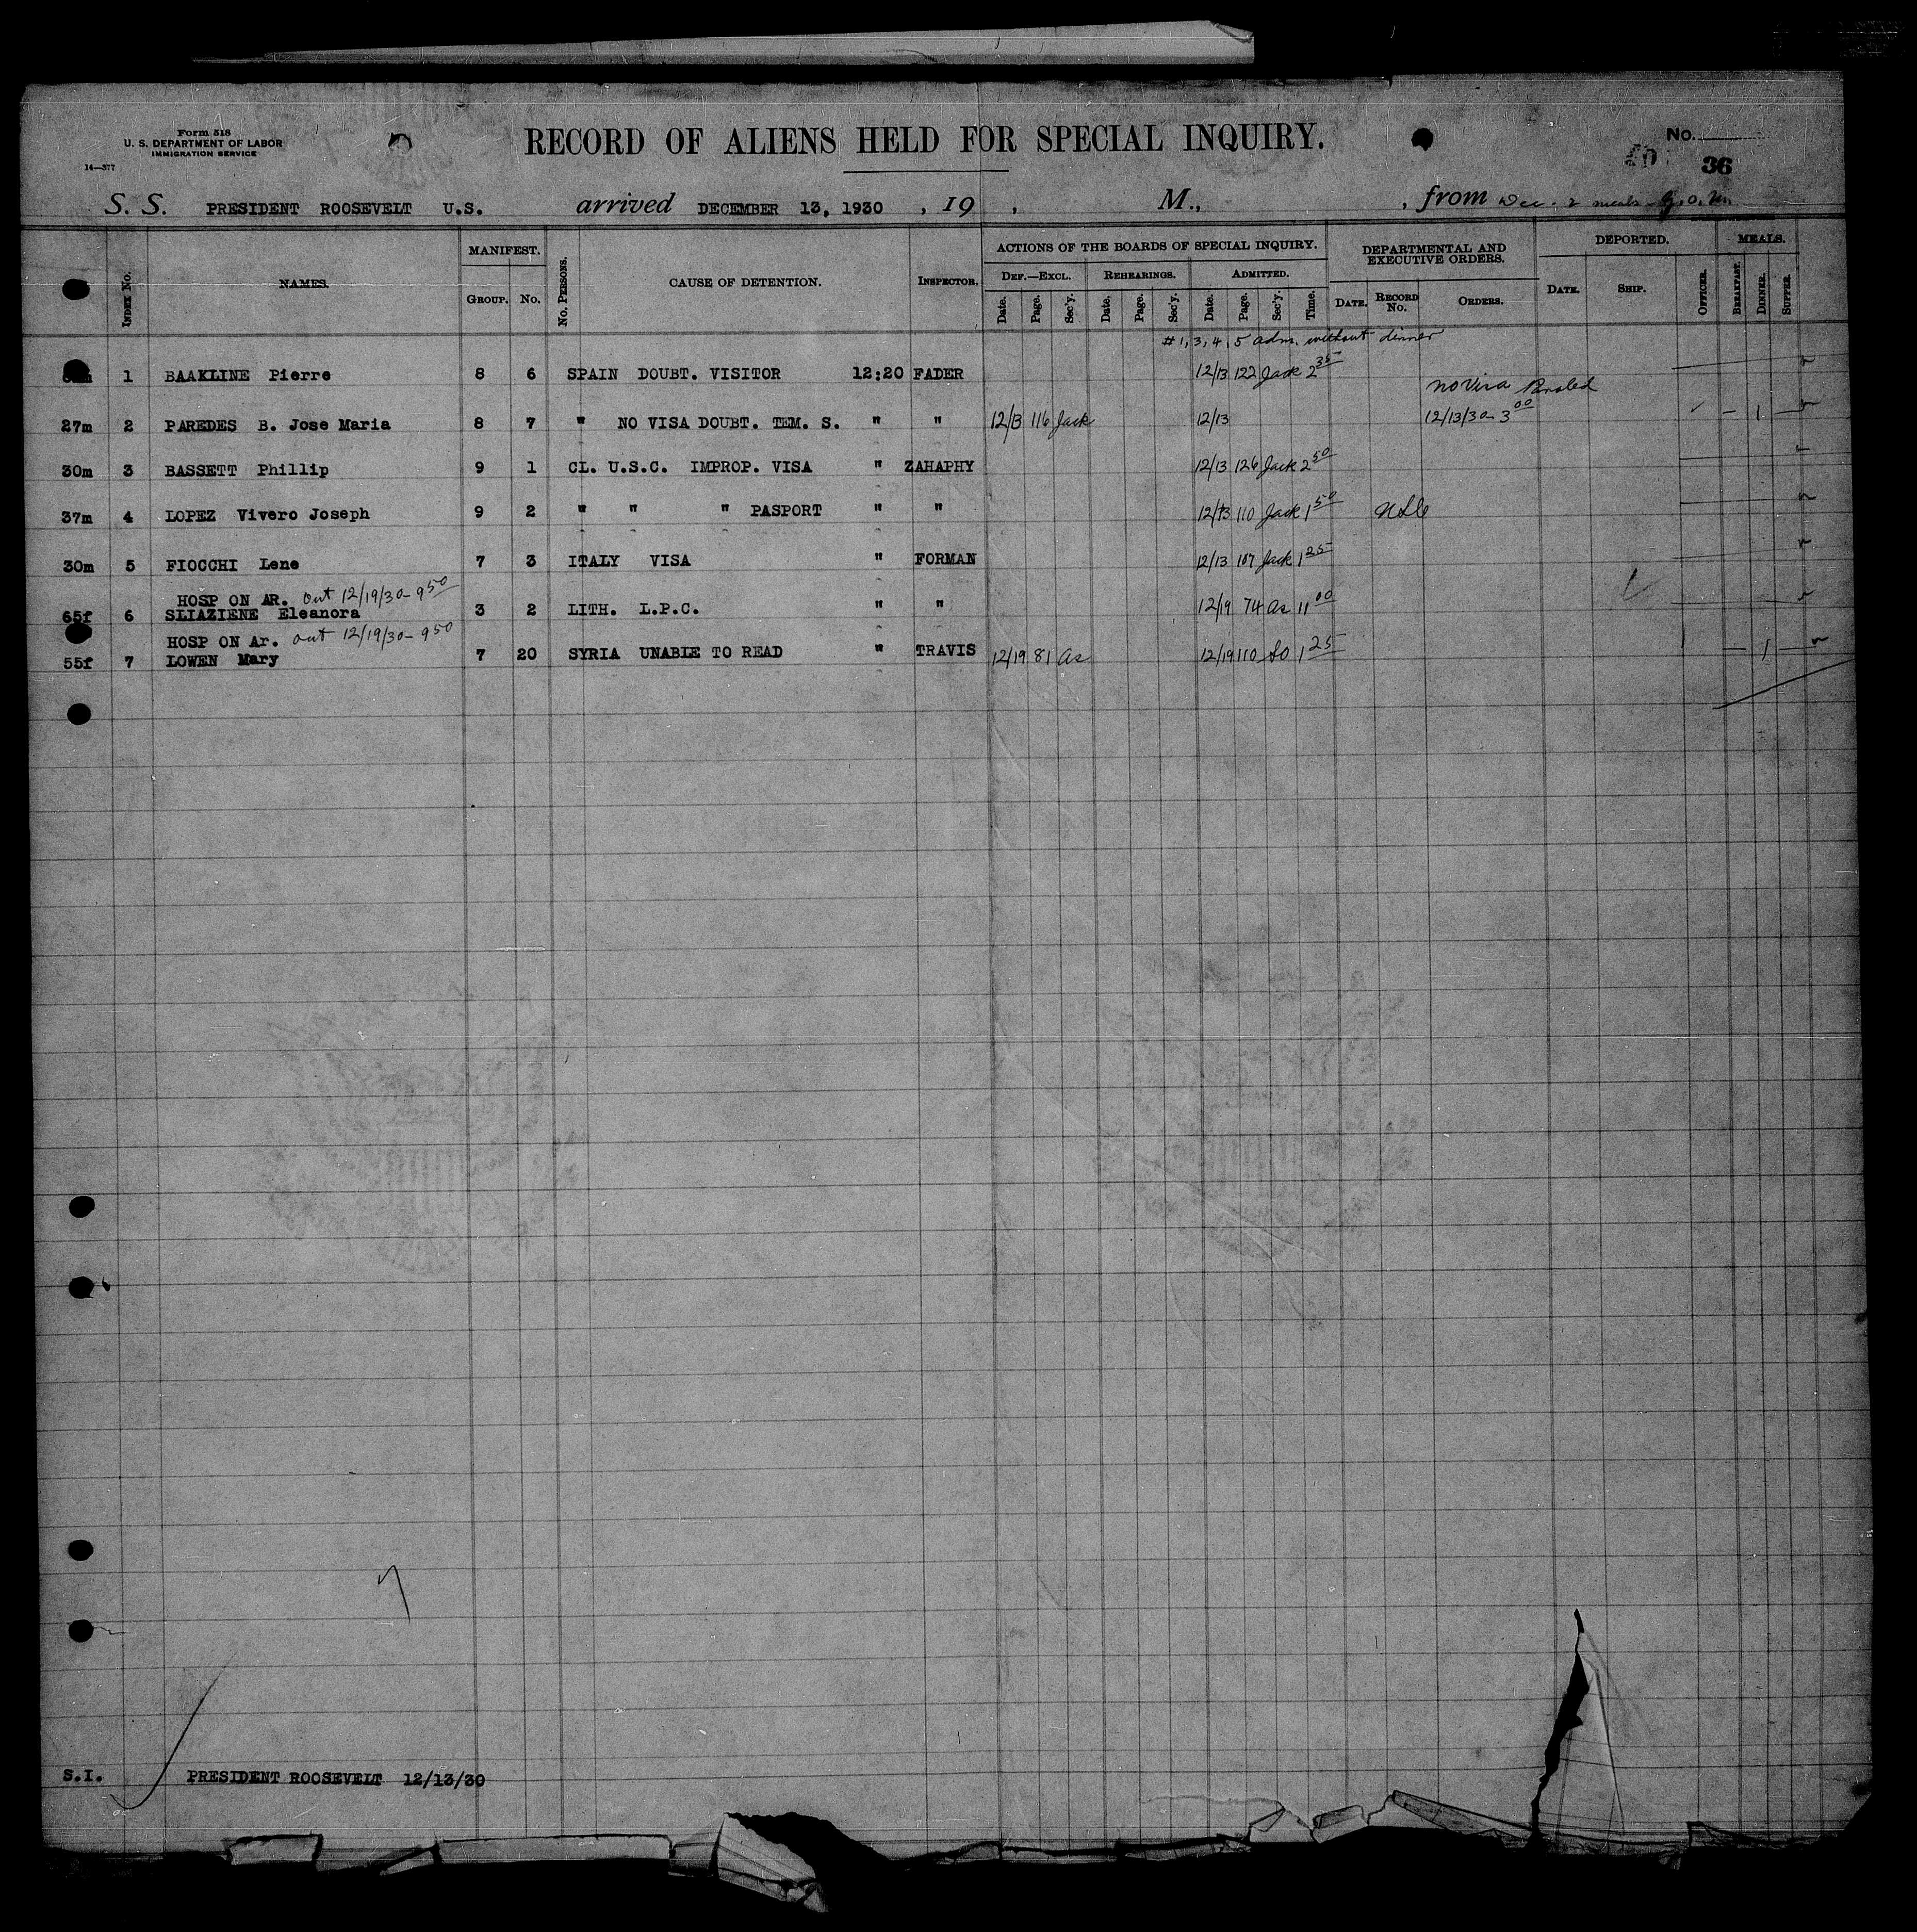 Form 518
U. S. DEPARTMENT OF LABOR
IMMIGRATION SERVICE
14—377
RECORD OF ALIENS HELD FOR SPECIAL INQUIRY.
No.
36
S. S. PRESIDENT ROOSEVELT U.S. arrived DECEMBER 13, 1930 , 19 , M., , from Dec. 2 meals
INDEX No. NAMES. MANIFEST. GROUP. No. No. PERSONS. CAUSE OF DETENTION. INSPECTOR. ACTIONS OF THE BOARDS OF SPECIAL INQUIRY. DEPARTMENTAL AND EXECUTIVE ORDERS. DEPORTED. MEALS.
DEF.—EXCL. REHEARINGS. ADMITTED.
Date. Page. Sec'y. Date. Page. Sec'y. Date. Page. Sec'y. Time. DATE. RECORD No. ORDERS. DATE. SHIP. OFFICER. BREAKFAST. DINNER. SUPPER.
#1, 3, 4, 5 adm. without dinner
1 BAAKLINE Pierre 8 6 SPAIN DOUBT. VISITOR 12:20 FADER 12/13 122 Jack 2 35
No Visa
27m 2 PAREDES B. Jose Maria 8 7 " NO VISA DOUBT. TEM. S. " " 12/13 116 Jack 12/13 12/13/30 - 3 00 — 1 —
30m 3 BASSETT Phillip 9 1 CL. U.S.C. IMPROP. VISA " ZAHAPHY 12/13 126 Jack 2 50
37m 4 LOPEZ Vivero Joseph 9 2 " " " PASPORT " " 12/13 110 Jack 1 50
30m 5 FIOCCHI Lene 7 3 ITALY VISA " FORMAN 12/13 107 Jack 1 25
HOSP ON AR. out 12/19/30 - 9 50
65f 6 SLIAZIENE Eleanora 3 2 LITH. L.P.C. " " 12/19 74 As 11 00
HOSP ON Ar. out 12/19/30 - 9 50
55f 7 LOWEN Mary 7 20 SYRIA UNABLE TO READ " TRAVIS 12/19 81 As 12/19 110 So 1 25 — 1 —
S.I. PRESIDENT ROOSEVELT 12/13/30